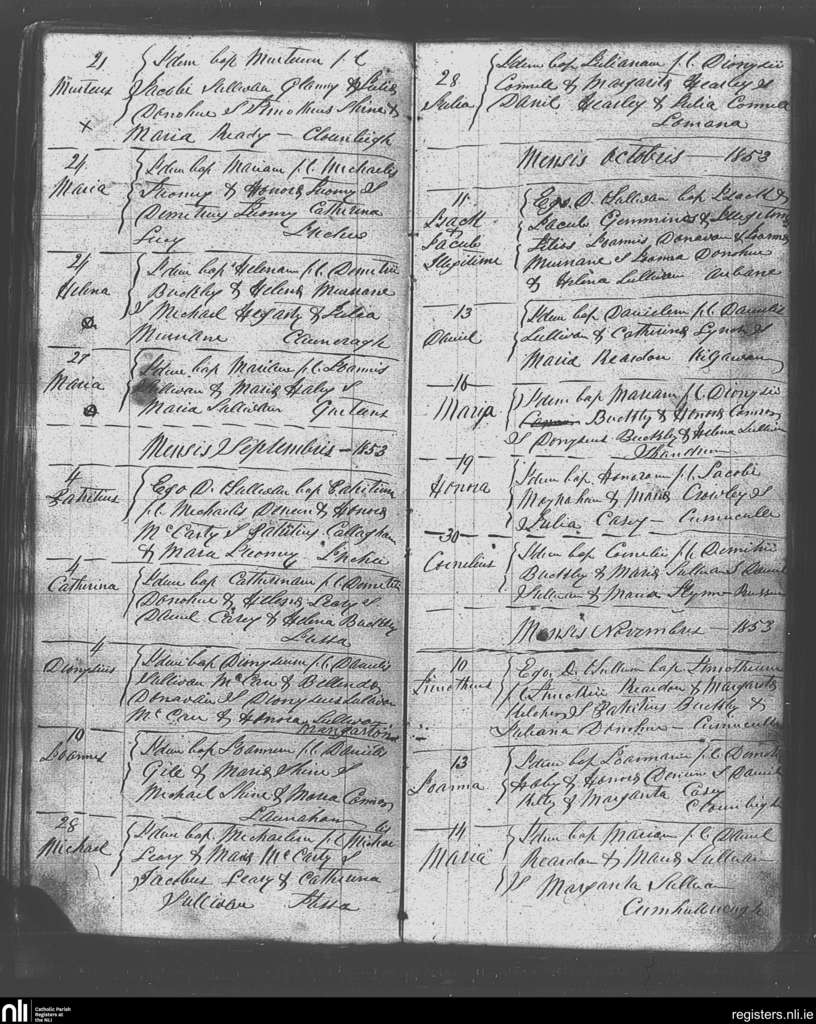 21
Murteus
Idem bap Murteum f. l.
Jacobi Sullivan Glanny & Julia
Donohue S Timotheus Shine &
Maria Ready — Clounleigh
24
Maria
Idem bap Mariam f. l. Michaelis
Twomy & Honora Twomy S
Demetrius Twomy Catherina
Lucy
24
Helena
Idem bap Helenam f. l. Demetrii
Buckley & Helena Murnane
S Michael Hegarty & Julia
Murnane
27
Maria
Idem bap Mariam f. l. Joannis
Sullivan & Maria Haly S
Maria Sullivan
Mensis Septembris — 1853
4
Patritius
Ego D. O'Sullivan bap Patritium
f. l. Michaelis Doneen & Honora
McCarty S Patritius Callaghan
& Maria Twomey
4
Catherina
Idem bap Catherinam f. l. Demetrii
Donohue & Helena Leary S
Daniel Casey & Helena Buckley
Lassa
4
Dionysius
Idem bap Dionysium f. l. Danielis
Sullivan McCru & Bellinda
Donovan S Dionysius Sullivan
McCru & Honora Sullivan
10
Joannes
Idem bap Joannem f. l. Danielis
Gile & Maria Shine S
Michael Shine & Maria Connor
28
Michael
Idem bap Michaelem f. l. Michaelis
Leary & Maria McCarty S
Jacobus Leary & Catherina
Sullivan Lassa
28
Julia
Idem bap Julianam f. l. Dionysii
& Margarita Hearley S
Daniel Hearley & Julia
Lomana
Mensis Octobris — 1853
11
Isack
&
Jacub
Illegitime
Ego D. O'Sullivan bap Isack &
Jacub Gemminos & Illegitimos
Filios Joannis Donovan & Joanna
Murnane S Joanna Donohue
& Helena Sullivan
13
Daniel
Idem bap Danielem f. l. Danielis
Sullivan & Catherina Lynch S
Maria Reardon
16
Maria
Idem bap Mariam f. l. Dionysii
Buckley & Honora Connor
S Dionysius Buckley & Helena Sullivan
19
Honora
Idem bap Honoram f. l. Jacobi
Moynahan & Maria Crowley S
Julia Casey —
30
Cornelius
Idem bap Cornelii f. l. Demitrii
Buckley & Maria Sullivan S Daniel
Sullivan & Maria Flynn
Mensis Novembris — 1853
10
Timotheus
Ego D. O'Sullivan bap Timotheum
f. l. Timothei Reardon & Margarita
S Patritius Buckley &
Juliana Donohue —
13
Joanna
Idem bap Joannam f. l. Demetrii
Haly & Honora Doneen S Daniel
Kelly & Margarita Casey
Clounleigh
14
Maria
Idem bap Mariam f. l. Daniel
Reardon & Maria Sullivan
S Margarita Sullivan
nli Catholic Parish
Registers at
the NLI
registers.nli.ie